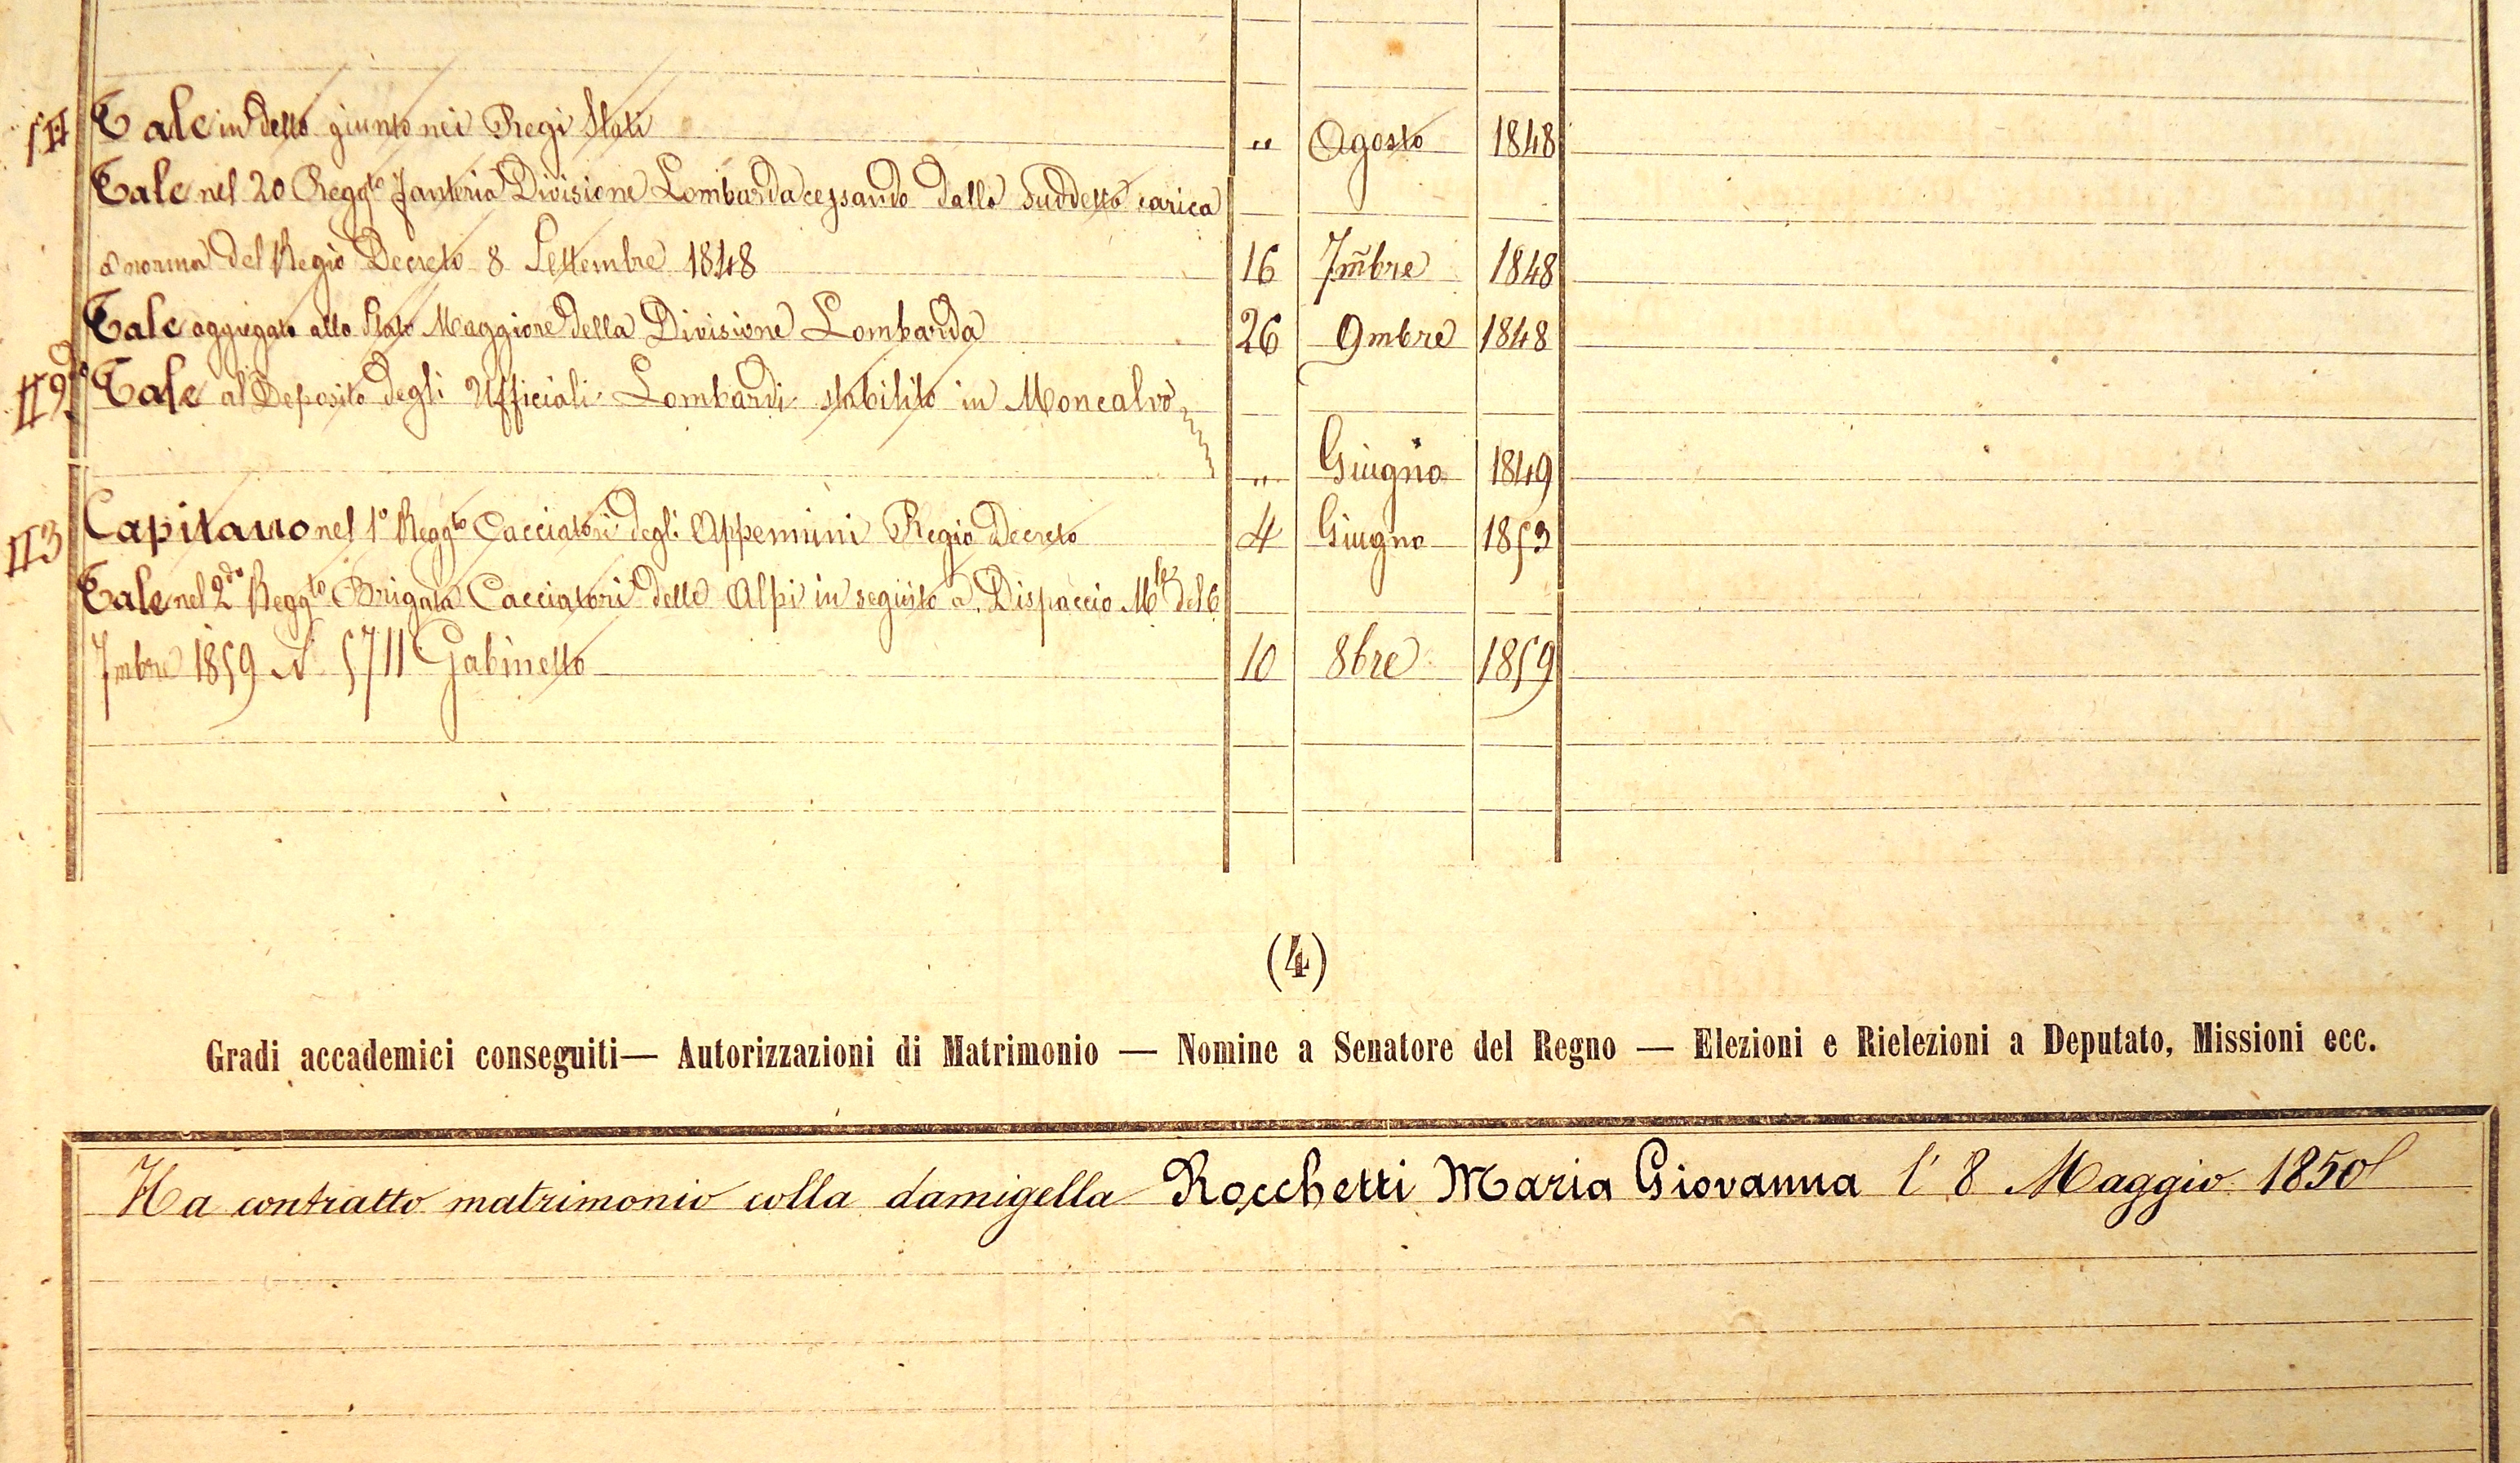 Tale in detto giunto nei Regi Stati " Agosto 1848
Tale nel 20 Reggto Fanteria Divisione Lombarda cessando dalla suddetta carica
a norma del Regio Decreto 8 Settembre 1848 16 7mbre 1848
Tale aggregato allo Stato Maggiore della Divisione Lombarda 26 9mbre 1848
Tale al Deposito degli Ufficiali Lombardi stabilito in Moncalvo
" Giugno 1849
Capitano nel 1° Reggto Cacciatori degli Appennini Regio Decreto 4 Giugno
Tale nel 2do Reggto Brigata Cacciatori delle Alpi in seguito a Dispaccio Mle del 6
7mbre 1859 N° 5711 Gabinetto 10 8bre 1859
(4)
Gradi accademici conseguiti— Autorizzazioni di Matrimonio — Nomine a Senatore del Regno — Elezioni e Rielezioni a Deputato, Missioni ecc.
Ha contratto matrimonio colla damigella Rocchetti Maria Giovanna l' 8 Maggio 1850